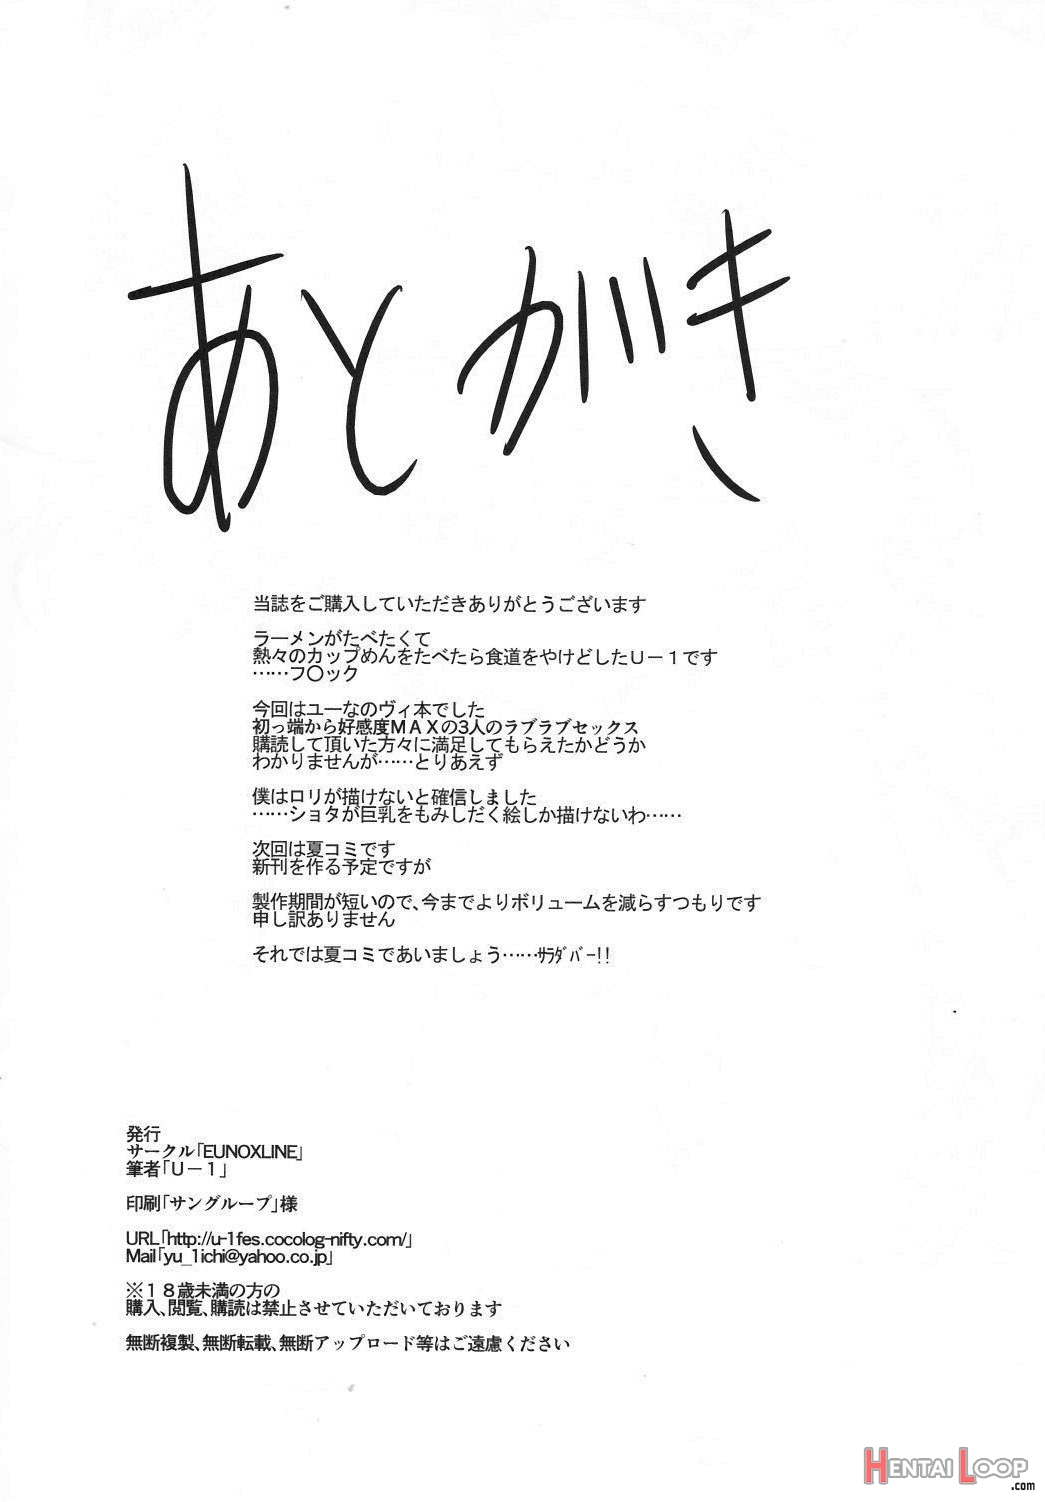 あとがき
当誌をご購入していただきありがとうございます
ラーメンがたべたくて
熱々のカップめんをたべたら食道をやけどしたU－１です
……フ○ック
今回はユーなのヴィ本でした
初っ端から好感度ＭＡＸの3人のラブラブセックス
購読して頂いた方々に満足してもらえたかどうか
わかりませんが……とりあえず
僕はロリが描けないと確信しました
……ショタが巨乳をもみしだく絵しか描けないわ……
次回は夏コミです
新刊を作る予定ですが
製作期間が短いので、今までよりボリュームを減らすつもりです
申し訳ありません
それでは夏コミであいましょう……ｻﾗﾀﾞﾊﾞｰ!!
発行
サークル「EUNOXLINE」
筆者「U－１」
印刷「サングループ」様
URL「http://u-1fes.cocolog-nifty.com/」
Mail「yu_1ichi@yahoo.co.jp」
※１８歳未満の方の
購入、閲覧、購読は禁止させていただいております
無断複製、無断転載、無断アップロード等はご遠慮ください
HENTAI LOOP
.com